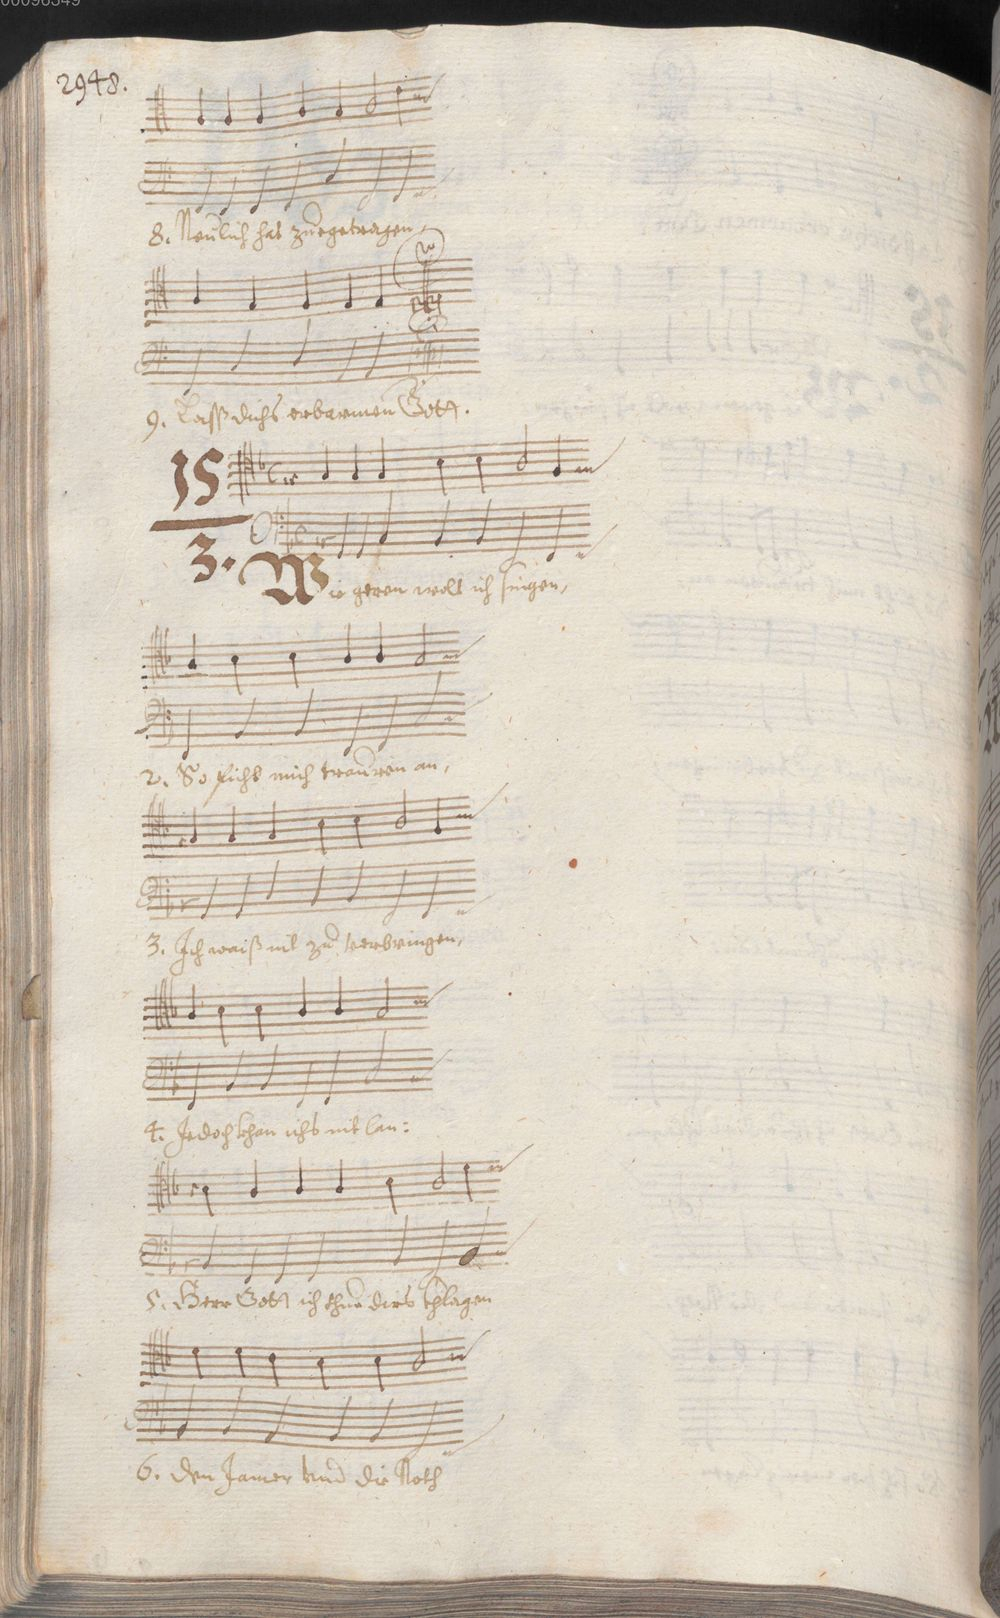 00096349
2948.
8. Neulich hat zuegetragen,
9. Lasß dichs erbarmen Gott.
15
3. Wie geren wolt ich singen,
2. So ficht mich trauren an,
3. Ich waiß nit zu verbringen,
4. Jedoch khan ichs nit lan:
5. Herr Gott ich thue dirs khlagen
6. den Jamer vnd die Noth